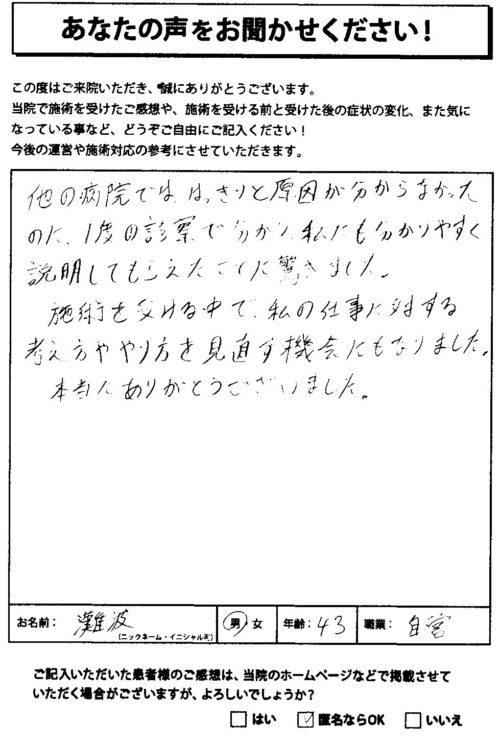 あなたの声をお聞かせください！
この度はご来院いただき、誠にありがとうございます。
当院で施術を受けたご感想や、施術を受ける前と受けた後の症状の変化、また気に
なっている事など、どうぞご自由にご記入ください！
今後の運営や施術対応の参考にさせていただきます。
他の病院では、はっきりと原因が分からなかった
のに、1度の診察で分かり、私にも分かりやすく
説明してもらえたことに驚きました。
施術を受ける中で、私の仕事に対する
考え方ややり方を見直す機会にもなりました。
本当にありがとうございました。
お名前： 難波 (ニックネーム・イニシャル可) 男・女 年齢： 43 職業： 自営
ご記入いただいた患者様のご感想は、当院のホームページなどで掲載させて
いただく場合がございますが、よろしいでしょうか？
□はい ☑匿名ならOK □いいえ